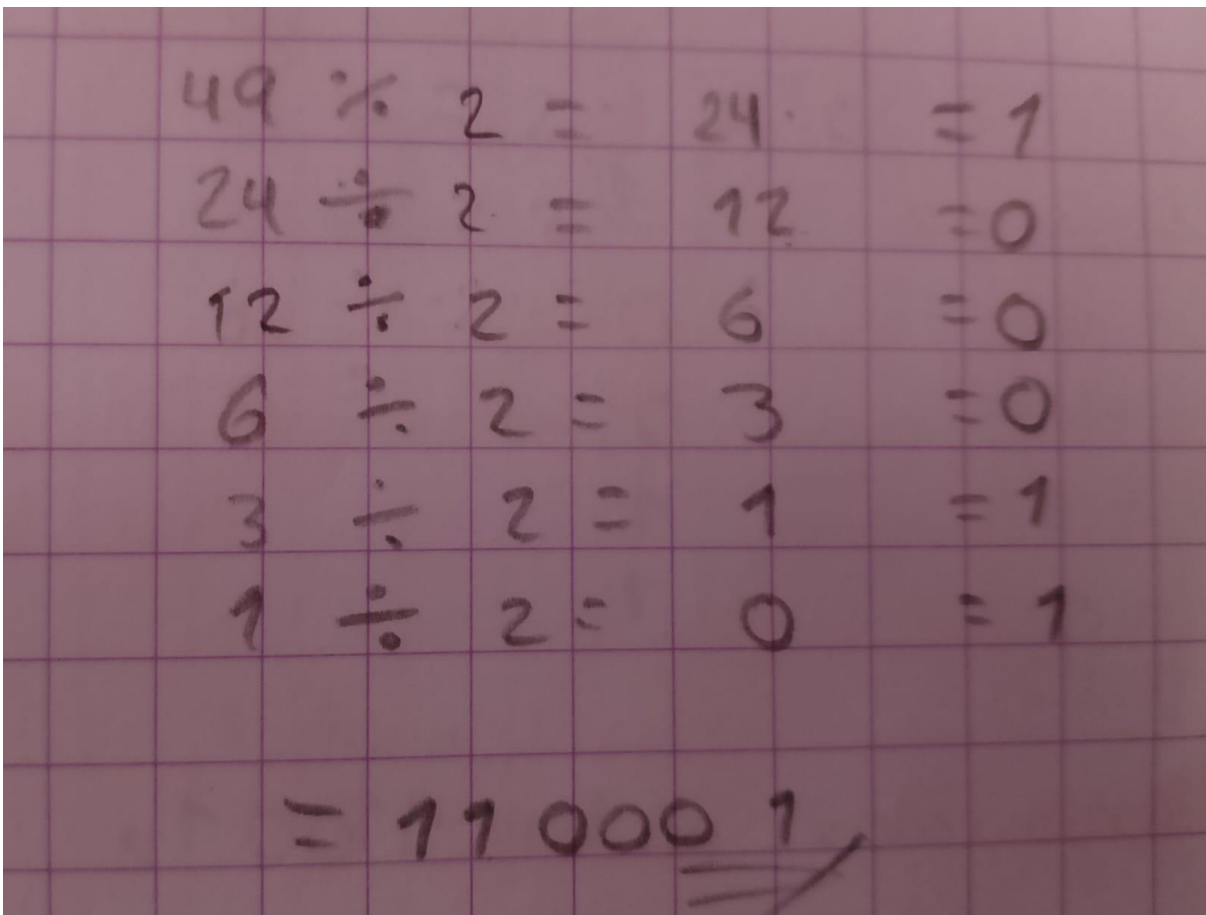 49 ÷ 2 = 24 = 1
24 ÷ 2 = 12 = 0
12 ÷ 2 = 6 = 0
6 ÷ 2 = 3 = 0
3 ÷ 2 = 1 = 1
1 ÷ 2 = 0 = 1
= 110001